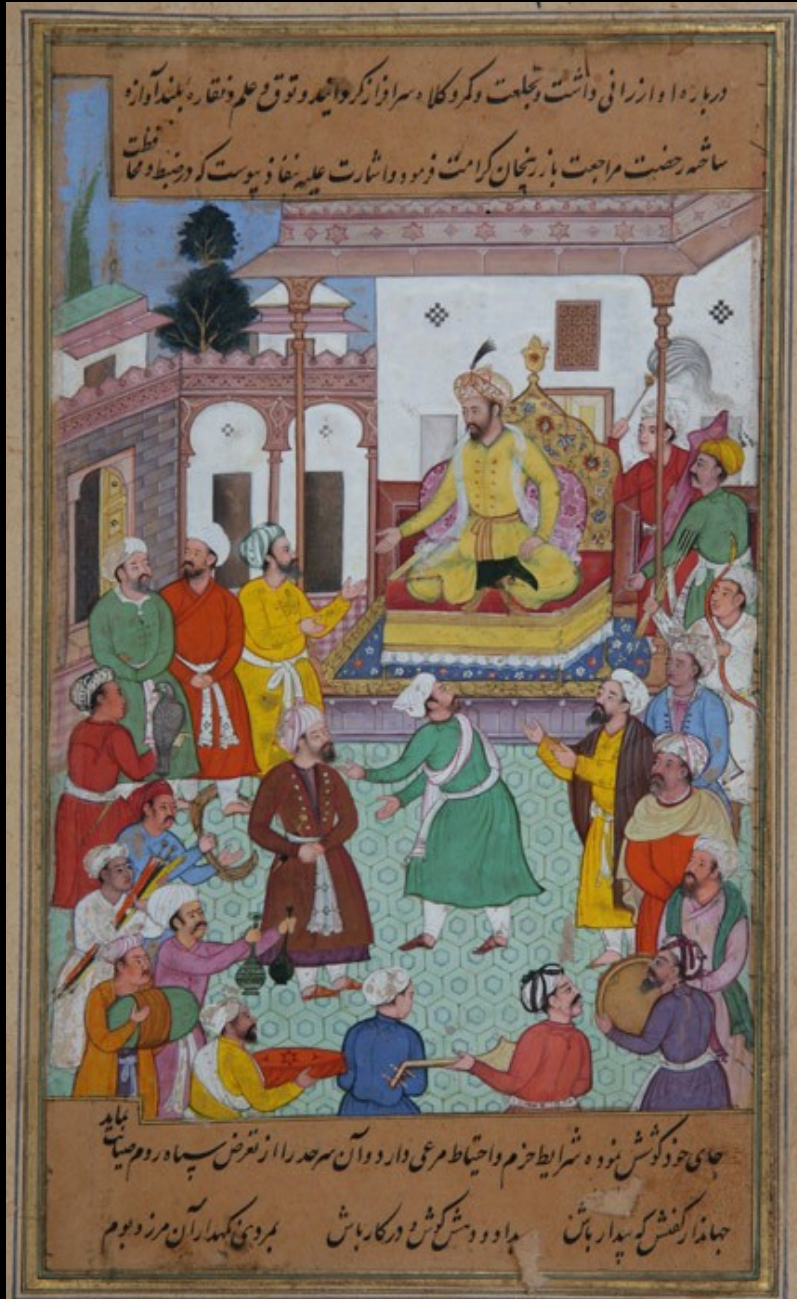 درباره او ارزانی داشت و بخلعت و کمر و کلاه سرافراز گردانید و توق و علم و نقاره بلند آوازه
ساخته رخصت مراجعت بارزنجان کرامت فرمود و اشارت علیه بنفاذ پیوست که در ضبط و محافظت
جای خود کوشش نموده شرایط حزم و احتیاط مرعی دارد و آن سرحد را از تعرض سپاه روم صیانت نماید
جهاندار گفتش که بیدار باش بداد و دهش کوش و در کار باش بمردی نگهدار آن مرز و بوم